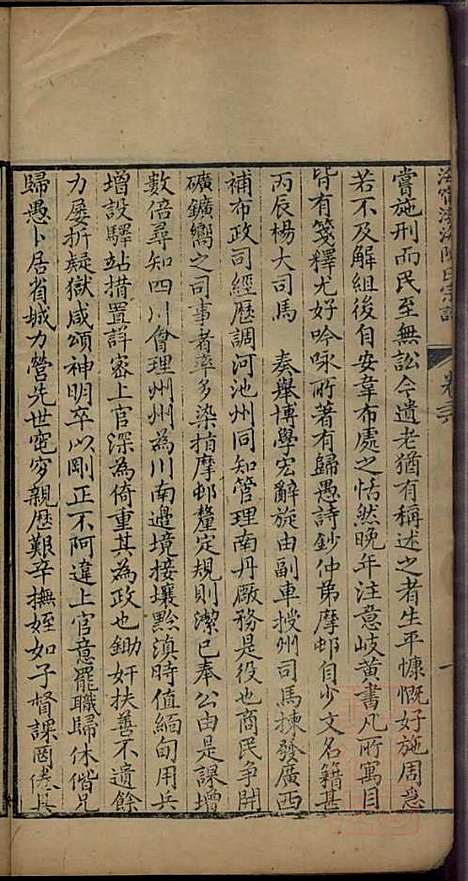 海寧渤海陳氏宗譜 卷之
嘗施刑而民至無訟今遺老猶有稱述之者生平慷慨好施周急
若不及解組後自安韋布處之恬然晚年注意岐黃書凡所寓目
皆有箋釋尤好吟咏所著有歸愚詩鈔仲弟摩邨自少文名籍甚
丙辰楊大司馬 奏舉博學宏辭旋由副車授州司馬揀發廣西
補布政司經歷調河池州同知管理南丹廠務是役也商民爭開
礦鑛嚮之司事者率多染指摩邨釐定規則潔己奉公由是課增
數倍尋知四川會理州州為川南邊境接壤黔滇時值緬甸用兵
增設驛站措置詳密上官深為倚重其為政也鋤奸扶善不遺餘
力屡折疑獄咸頌神明卒以剛正不阿違上官意罷職歸休偕兄
歸愚卜居省城力營先世窀穸親歷艱辛撫姪如子督課罔倦具